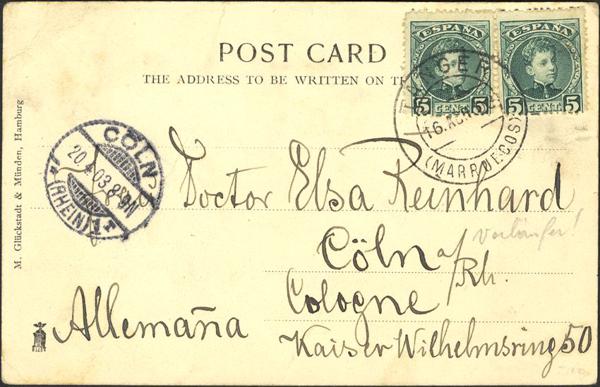 POST CARD
THE ADDRESS TO BE WRITTEN ON TH
ESPAÑA
5 CENT. 5
ESPAÑA
5 CENT. 5
TANGER
(MARRUECOS)
M. Glückstadt & Münden, Hamburg
CÖLN
20.4.03.8-9N
(RHEIN)
Doctor Elsa Reinhard
Cöln a/Rh.
Cologne
Allemaña
Kaiser Wilhelmsring 50